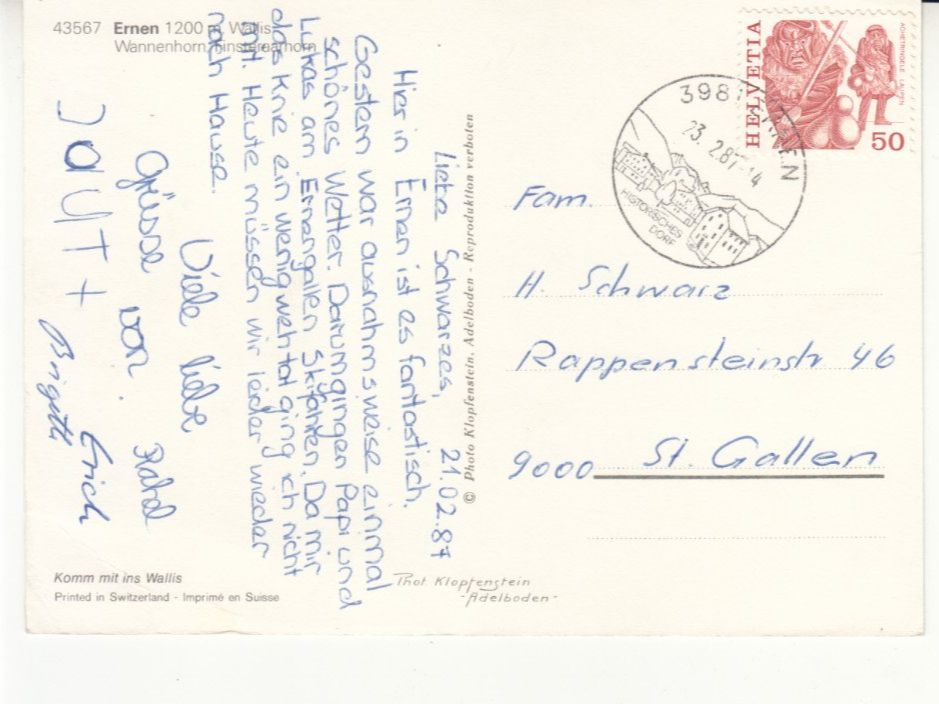 43567 Ernen 1200 m, Wallis
Wannenhorn, Finsteraarhorn
HELVETIA
ACHETRINGELE LAUPEN
50
3981 ERNEN
23. 2.87-14
HISTORISCHES
DORF
Liebe Schwarzes, 21.02.87
Hier in Ernen ist es fantastisch.
Gestern war ausnahmsweise einmal
schönes Wetter. Darum gingen Papi und
Lukas am Ernergallen Skifahren. Da mir
das Knie ein wenig weh tat ging ich nicht
mit. Heute müssen wir leider wieder
nach Hause.
Viele liebe
Grüsse von
+ Brigitte Erich
© Photo Klopfenstein, Adelboden - Reproduktion verboten
Fam.
H. Schwarz
Rappensteinstr 46
9000 St. Gallen
Komm mit ins Wallis
Printed in Switzerland - Imprimé en Suisse
Phot. Klopfenstein
- Adelboden -